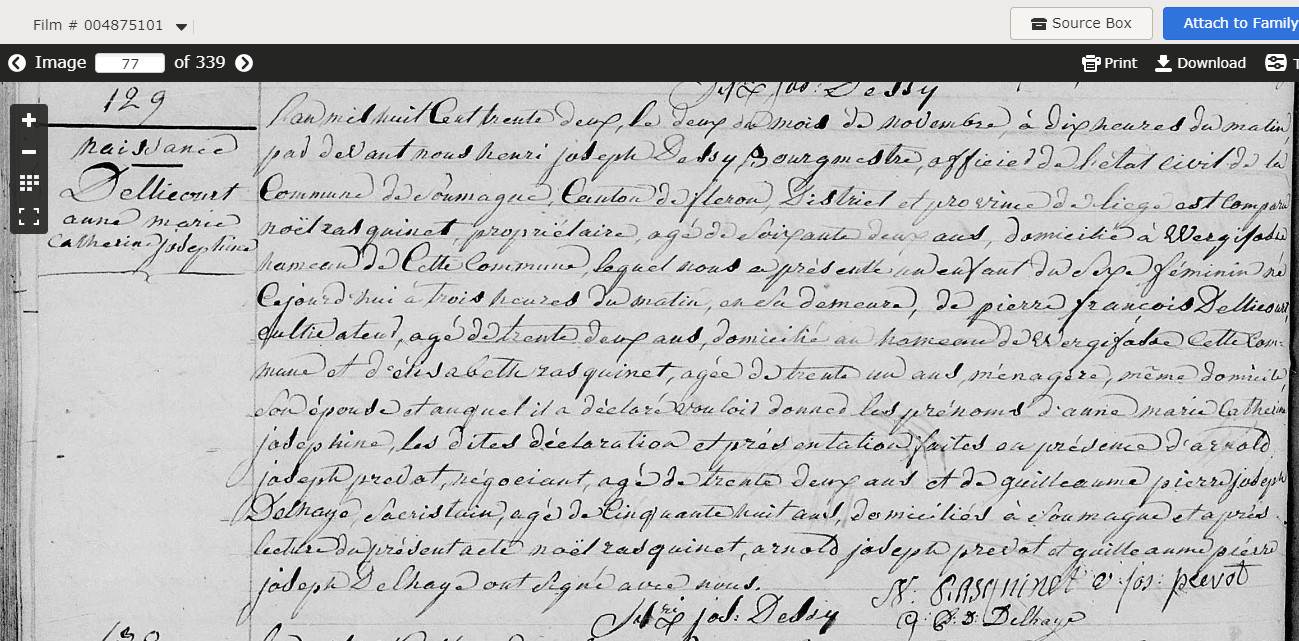 Film # 004875101
Source Box
Attach to Family
Image 77 of 339
Print
Download
T
jos: Dessy
129
naissance
Dellicourt
anne marie
Catherine josephine
L'an mil huit Cent trente deux, le deux du mois de novembre, à dix heures du matin
par devant nous henri joseph Dessy, Bourgmestre, officier de l'état civil de la
Commune de Soumagne, Canton de fleron, District et province de liege est compara
noël rasquinet, propriétaire, agé de Soixante deux ans, domicilié à Wergifosse
hameau de Cette Commune, lequel nous a présenté un enfant du Sexe féminin né
Cejourd'hui à trois heures du matin, en Sa demeure, de pierre françois Dellicourt,
Cultivateur, agé de trente deux ans, domicilié au hameau de Wergifosse Cette Com-
mune et d'élisabeth rasquinet, agée de trente un ans, ménagère, même domicile
Son épouse et auquel il a déclaré vouloir donner les prénoms d'anne marie Catherine
josephine, les dites déclaration et présentation faites en présence d'arnold
joseph prevot, négociant, agé de trente deux ans et de guilleaume pierre joseph
Delhaye, Sacristain, agé de Cinquante huit ans, domiciliés à Soumagne et après
lecture du présent acte noël rasquinet, arnold joseph prevot et guilleaume pierre
joseph Delhaye ont Signé avec nous.
N: Rasquinet a: jos: prevot
jos: Dessy
g. p. j. Delhaye
130